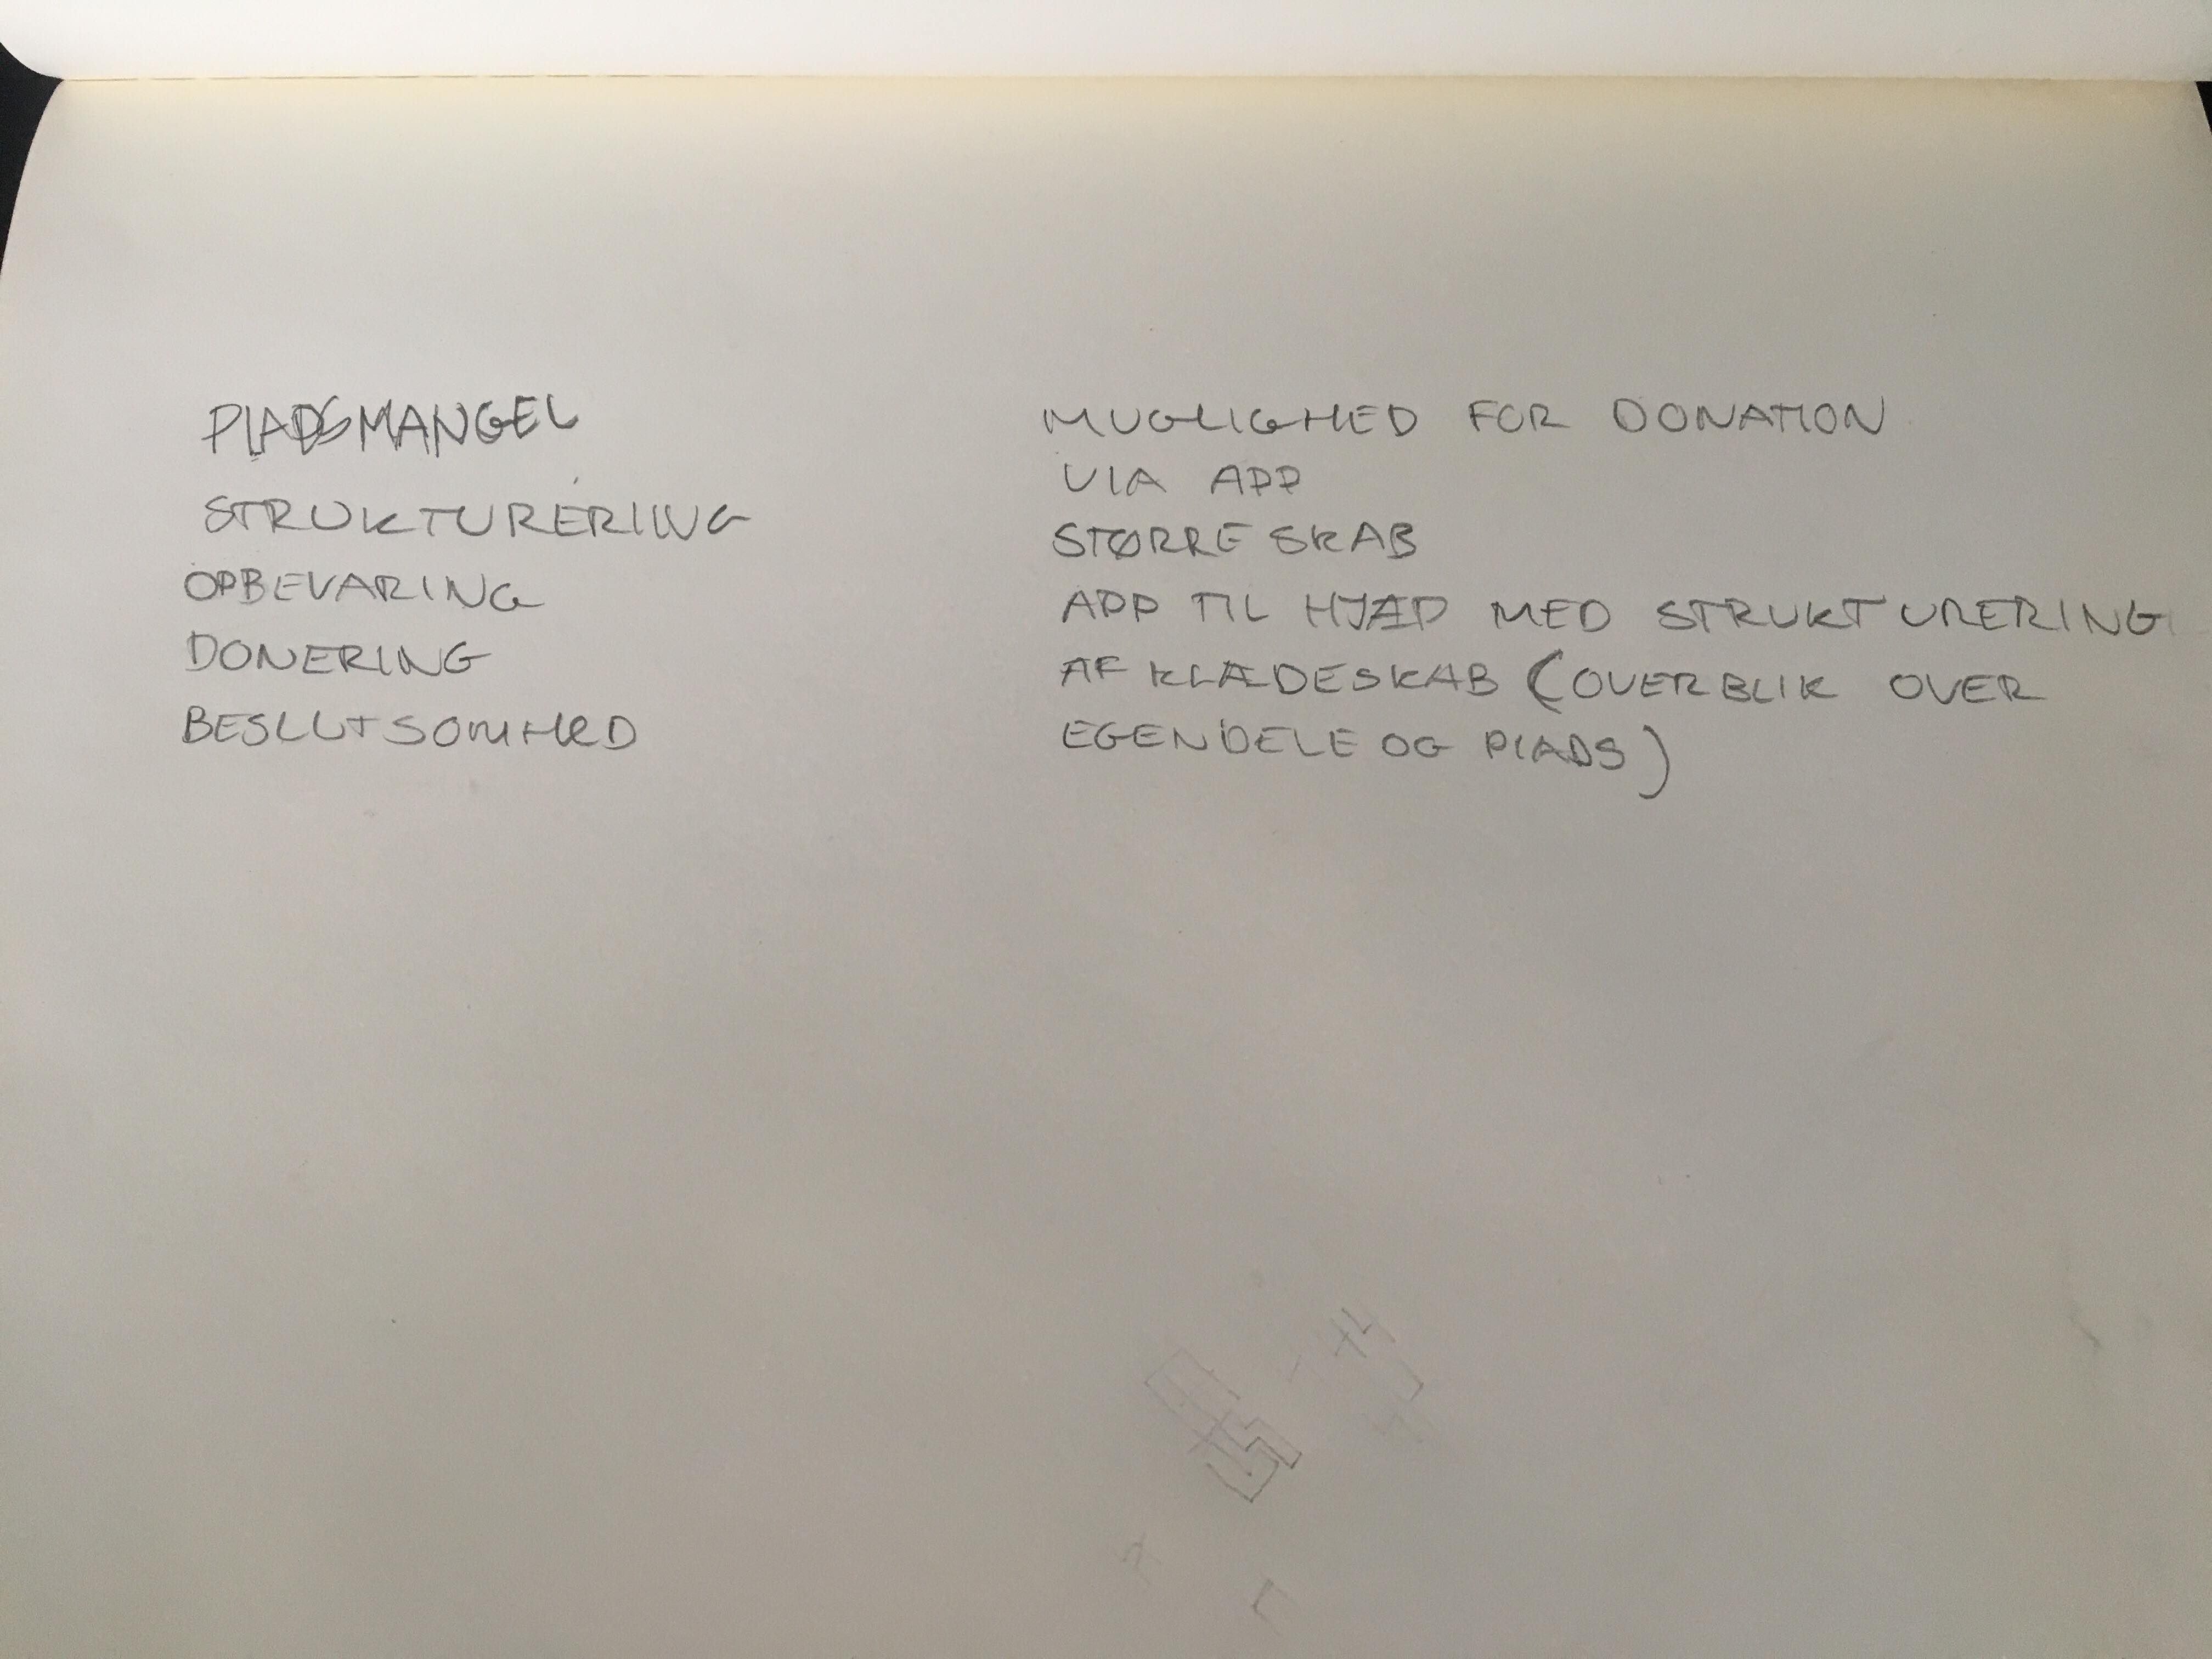 PLADSMANGEL
STRUKTURERING
OPBEVARING
DONERING
BESLUTSOMHED
MUGLIGHED FOR DONATION
VIA APP
STØRRE SKAB
APP TIL HJÆP MED STRUKTURERING
AF KLÆDESKAB (OVERBLIK OVER
EGENDELE OG PLADS)